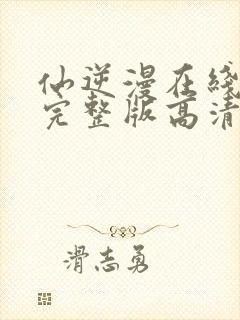 仙逆漫在线
完整版高清
滑志勇